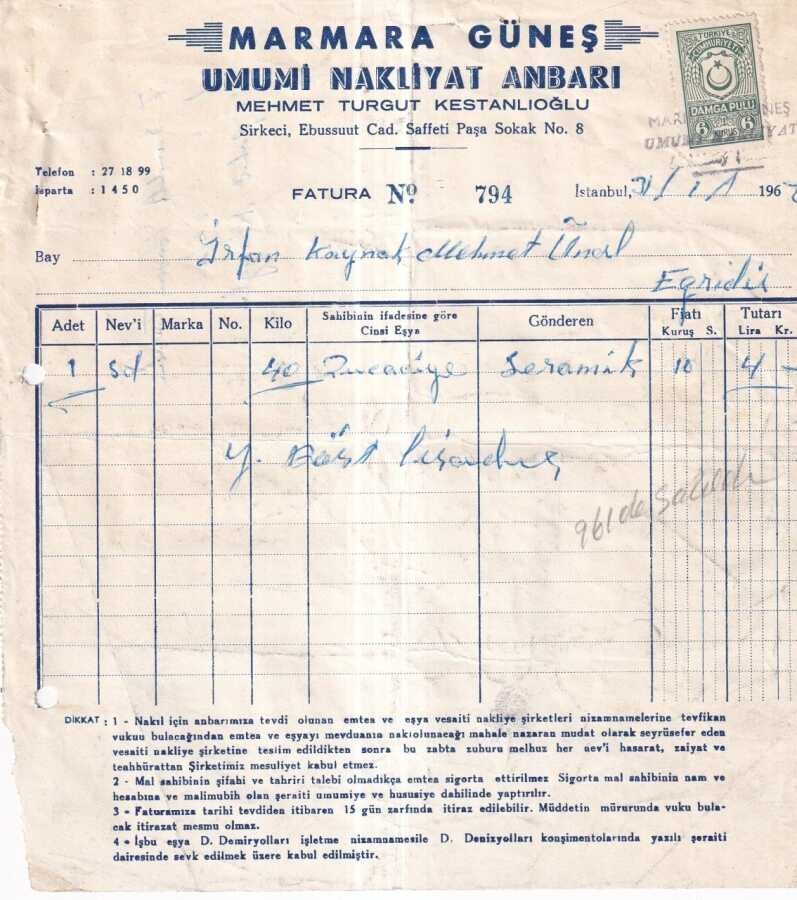 MARMARA GÜNEŞ
UMUMİ NAKLİYAT ANBARI
MEHMET TURGUT KESTANLIOĞLU
Sirkeci, Ebussuut Cad. Saffeti Paşa Sokak No. 8
TÜRKİYE CUMHURİYETİ
DAMGA PULU
6 KURUŞ 6
Telefon : 27 18 99
Isparta : 1450
FATURA No 794 İstanbul, 196
Bay İrfan Kaynak Mehmet Ünal
Eğridir
Adet Nev'i Marka No. Kilo Sahibinin ifadesine göre Cinsi Eşya Gönderen Fiatı Kuruş S. Tutarı Lira Kr.
1 Sd 40 Zucaciye Seramik 10 4 -
DİKKAT : 1 - Nakıl için anbarımıza tevdi olunan emtea ve eşya vesaiti nakliye şirketleri nizamnamelerine tevfikan
vukuu bulacağından emtea ve eşyayı mevduanın nakiolunacağı mahale nazaran mudat olarak seyrüsefer eden
vesaiti nakliye şirketine teslim edildikten sonra bu zabta zuhuru melhuz her nev'i hasarat, zaiyat ve
teahhürattan Şirketimiz mesuliyet kabul etmez.
2 - Mal sahibinin şifahi ve tahriri talebi olmadıkça emtea sigorta ettirilmez Sigorta mal sahibinin nam ve
hesabına ve malimubih olan şeraiti umumiye ve hususiye dahilinde yaptırılır.
3 - Faturamıza tarihi tevdiden itibaren 15 gün zarfında itiraz edilebilir. Müddetin mürurunda vuku bula-
cak itirazat mesmu olmaz.
4 - İşbu eşya D. Demiryolları işletme nizamnamesile D. Denizyolları konşimentolarında yazılı şeraiti
dairesinde sevk edilmek üzere kabul edilmiştir.